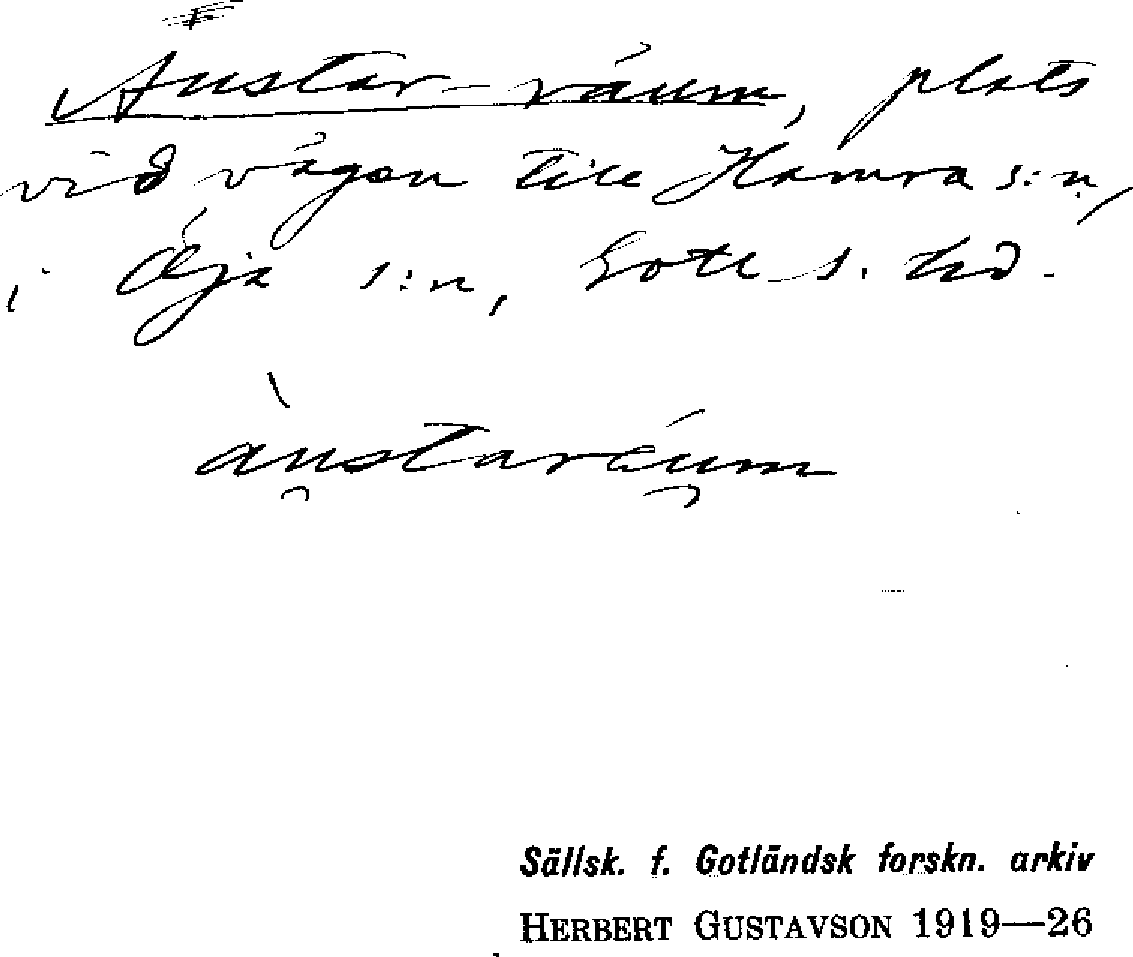 Austar-räum, plats
vid vägen till Hamra s:n,
i Öja s:n, Gotl. s. hd.
àu̯staréu̯m
Sällsk. f. Gotländsk forskn. arkiv
HERBERT GUSTAVSON 1919—26